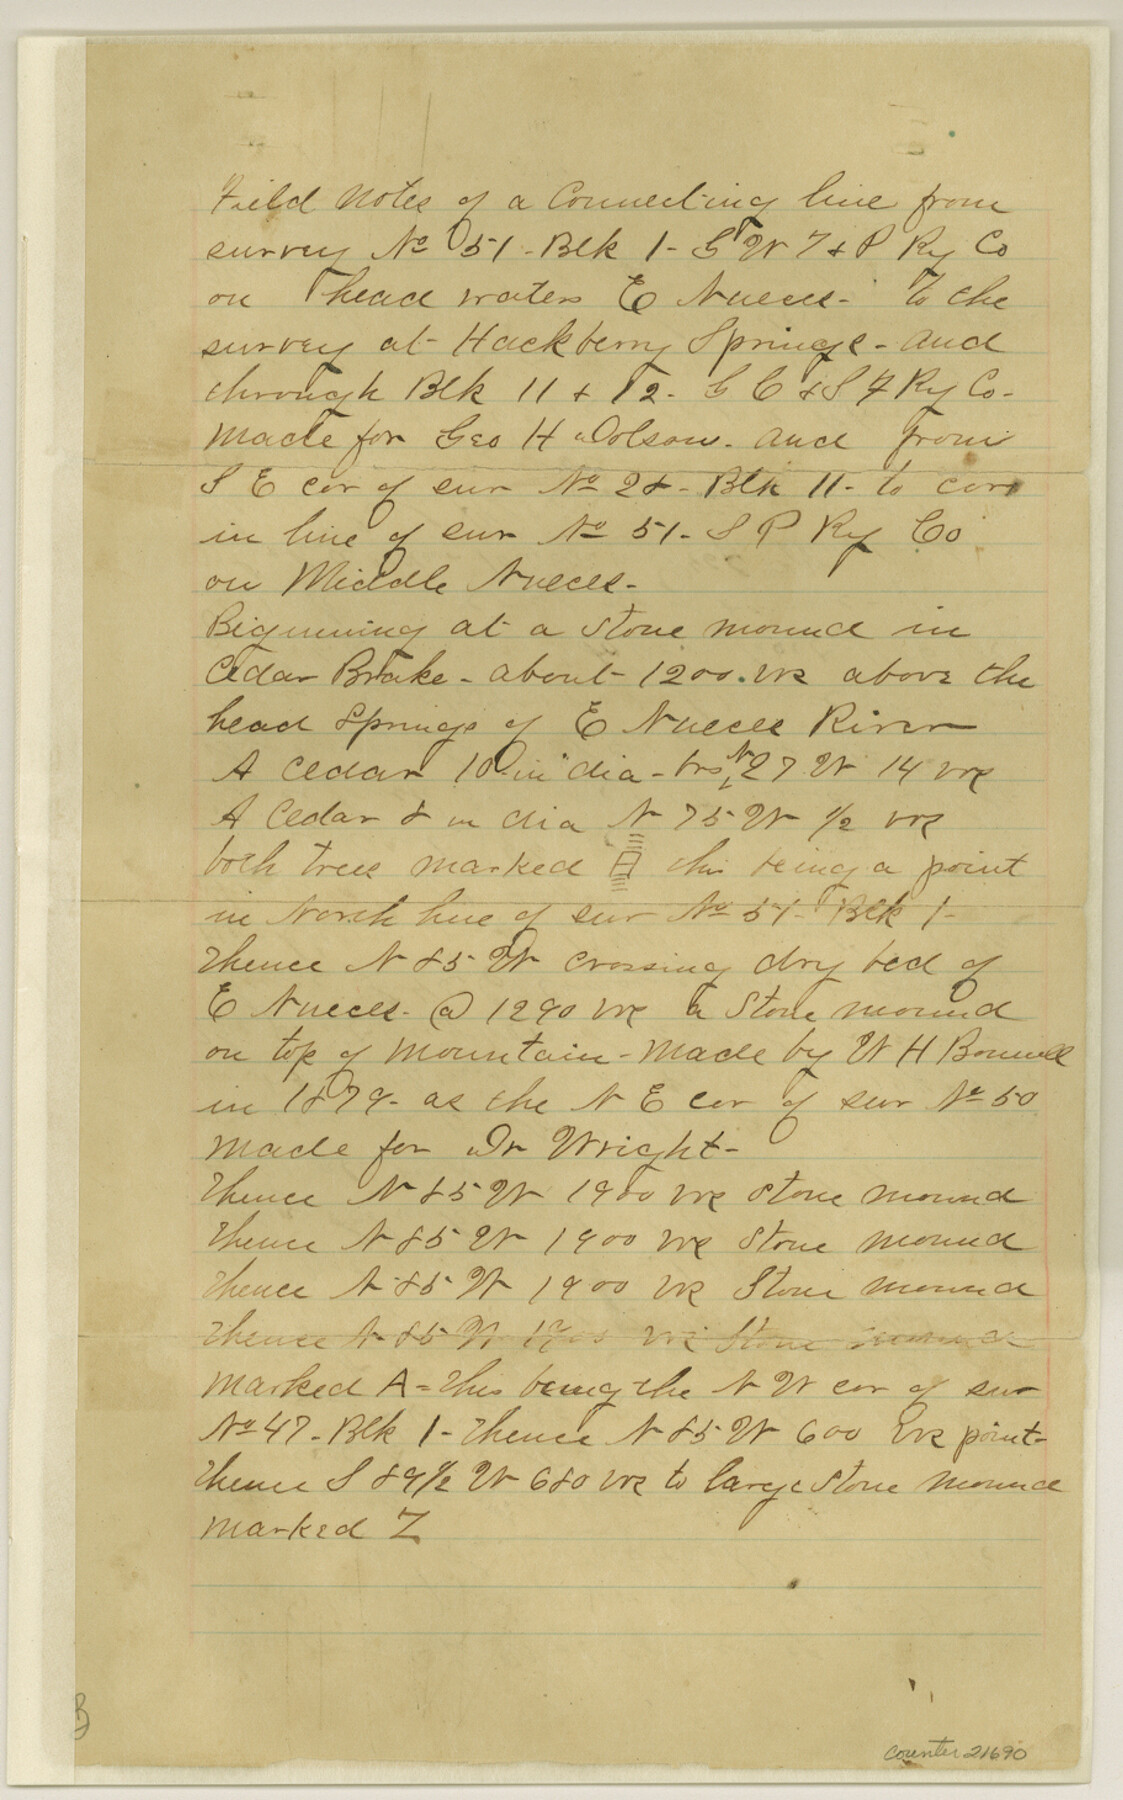 Field Notes of a Connecting line from
survey No 51 - Blk 1 - G W T & P Ry Co
on head waters E Nueces - to the
survey at Hackberry Springs - and
through Blk 11 & 12 - G C & S F Ry Co -
made for Geo H Dolson - and from
S E cor of sur No 28 - Blk 11 - to cor
in line of sur No 51 - S P Ry Co
on Middle Nueces -
Biginning at a stone mound in
Cedar Brake - about 1200 vrs above the
head Springs of E Nueces River
A Cedar 10 in dia - brs N 27 W 14 vrs
A Cedar 8 in dia N 75 W 1/2 vrs
both trees marked this being a point
in North line of sur No 51 - Blk 1 -
Thence N 85 W crossing dry bed of
E Nueces - @ 1290 vrs a Stone mound
on top of mountain - made by W H Bonnell
in 1879 - as the N E cor of sur No 50
made for Dr Wright -
Thence N 85 W 1900 vrs stone mound
Thence N 85 W 1900 vrs Stone mound
Thence N 85 W 1900 vrs Stone mound
Thence N 85 W 1900 vrs Stone mound
marked A = this being the N W cor of sur
No 47 - Blk 1 - Thence N 85 W 600 vrs point -
Thence S 89 1/2 W 680 vrs to large stone mound
marked Z
B
Counter 21690